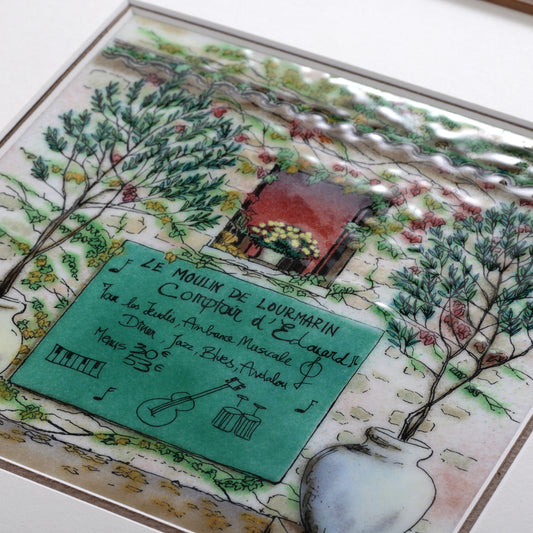 LE MOULIN DE LOURMARIN
Comptoir d'Edouard
Tous les Jeudis, Ambiance Musicale
Dîner, Jazz, Blues, Andalou
Menus 30€
53€